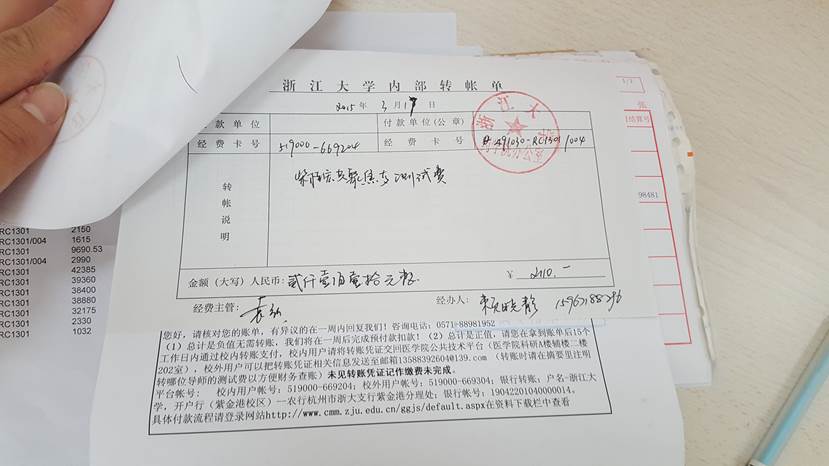 浙江大学内部转帐单
2015年3月17日
款单位
付款单位(公章)
经费卡号
519000-669204
经费卡号
491030-RC1301/004
浙江大
办公室
转帐说明
激光共聚焦 测试费
金额(大写)人民币:贰仟壹佰壹拾元整
¥ 2110.-
经费主管:
经办人:
您好,请核对您的账单,有异议的在一周内回复我们!咨询电话:0571-88981952
(1)总计是负值无需转账,我们将在一周后完成预付款扣款!(2)总计是正值,请您在拿到账单后15个
工作日内通过校内转账支付,校内用户请将转账凭证交回医学院公共技术平台(医学院科研A楼辅楼二楼
202室),校外用户可以把转账凭证相关信息发送至邮箱13588392604@139.com(转账时请在摘要里注明
转哪位导师的测试费以方便财务查账)未见转账凭证记作缴费未完成。
平台帐号; 校内用户帐号:519000-669204;校外用户帐号:519000-669304;银行转账:户名-浙江大
学,开户行(紫金港校区)一农行杭州市浙大支行紫金港分理处;银行帐号:19042201040000014。
具体付款流程请登录网站http://www.cmm.zju.edu.cn/ggjs/default.aspx在资料下载栏中查看
RC1301 2150
RC1301/004 1615
RC1301 9690.53
RC1301/004 2990
RC1301 42385
RC1301 39360
RC1301 38400
RC1301 38880
RC1301 32175
RC1301 2330
RC1301 1032
1/1
张
结算号
98481